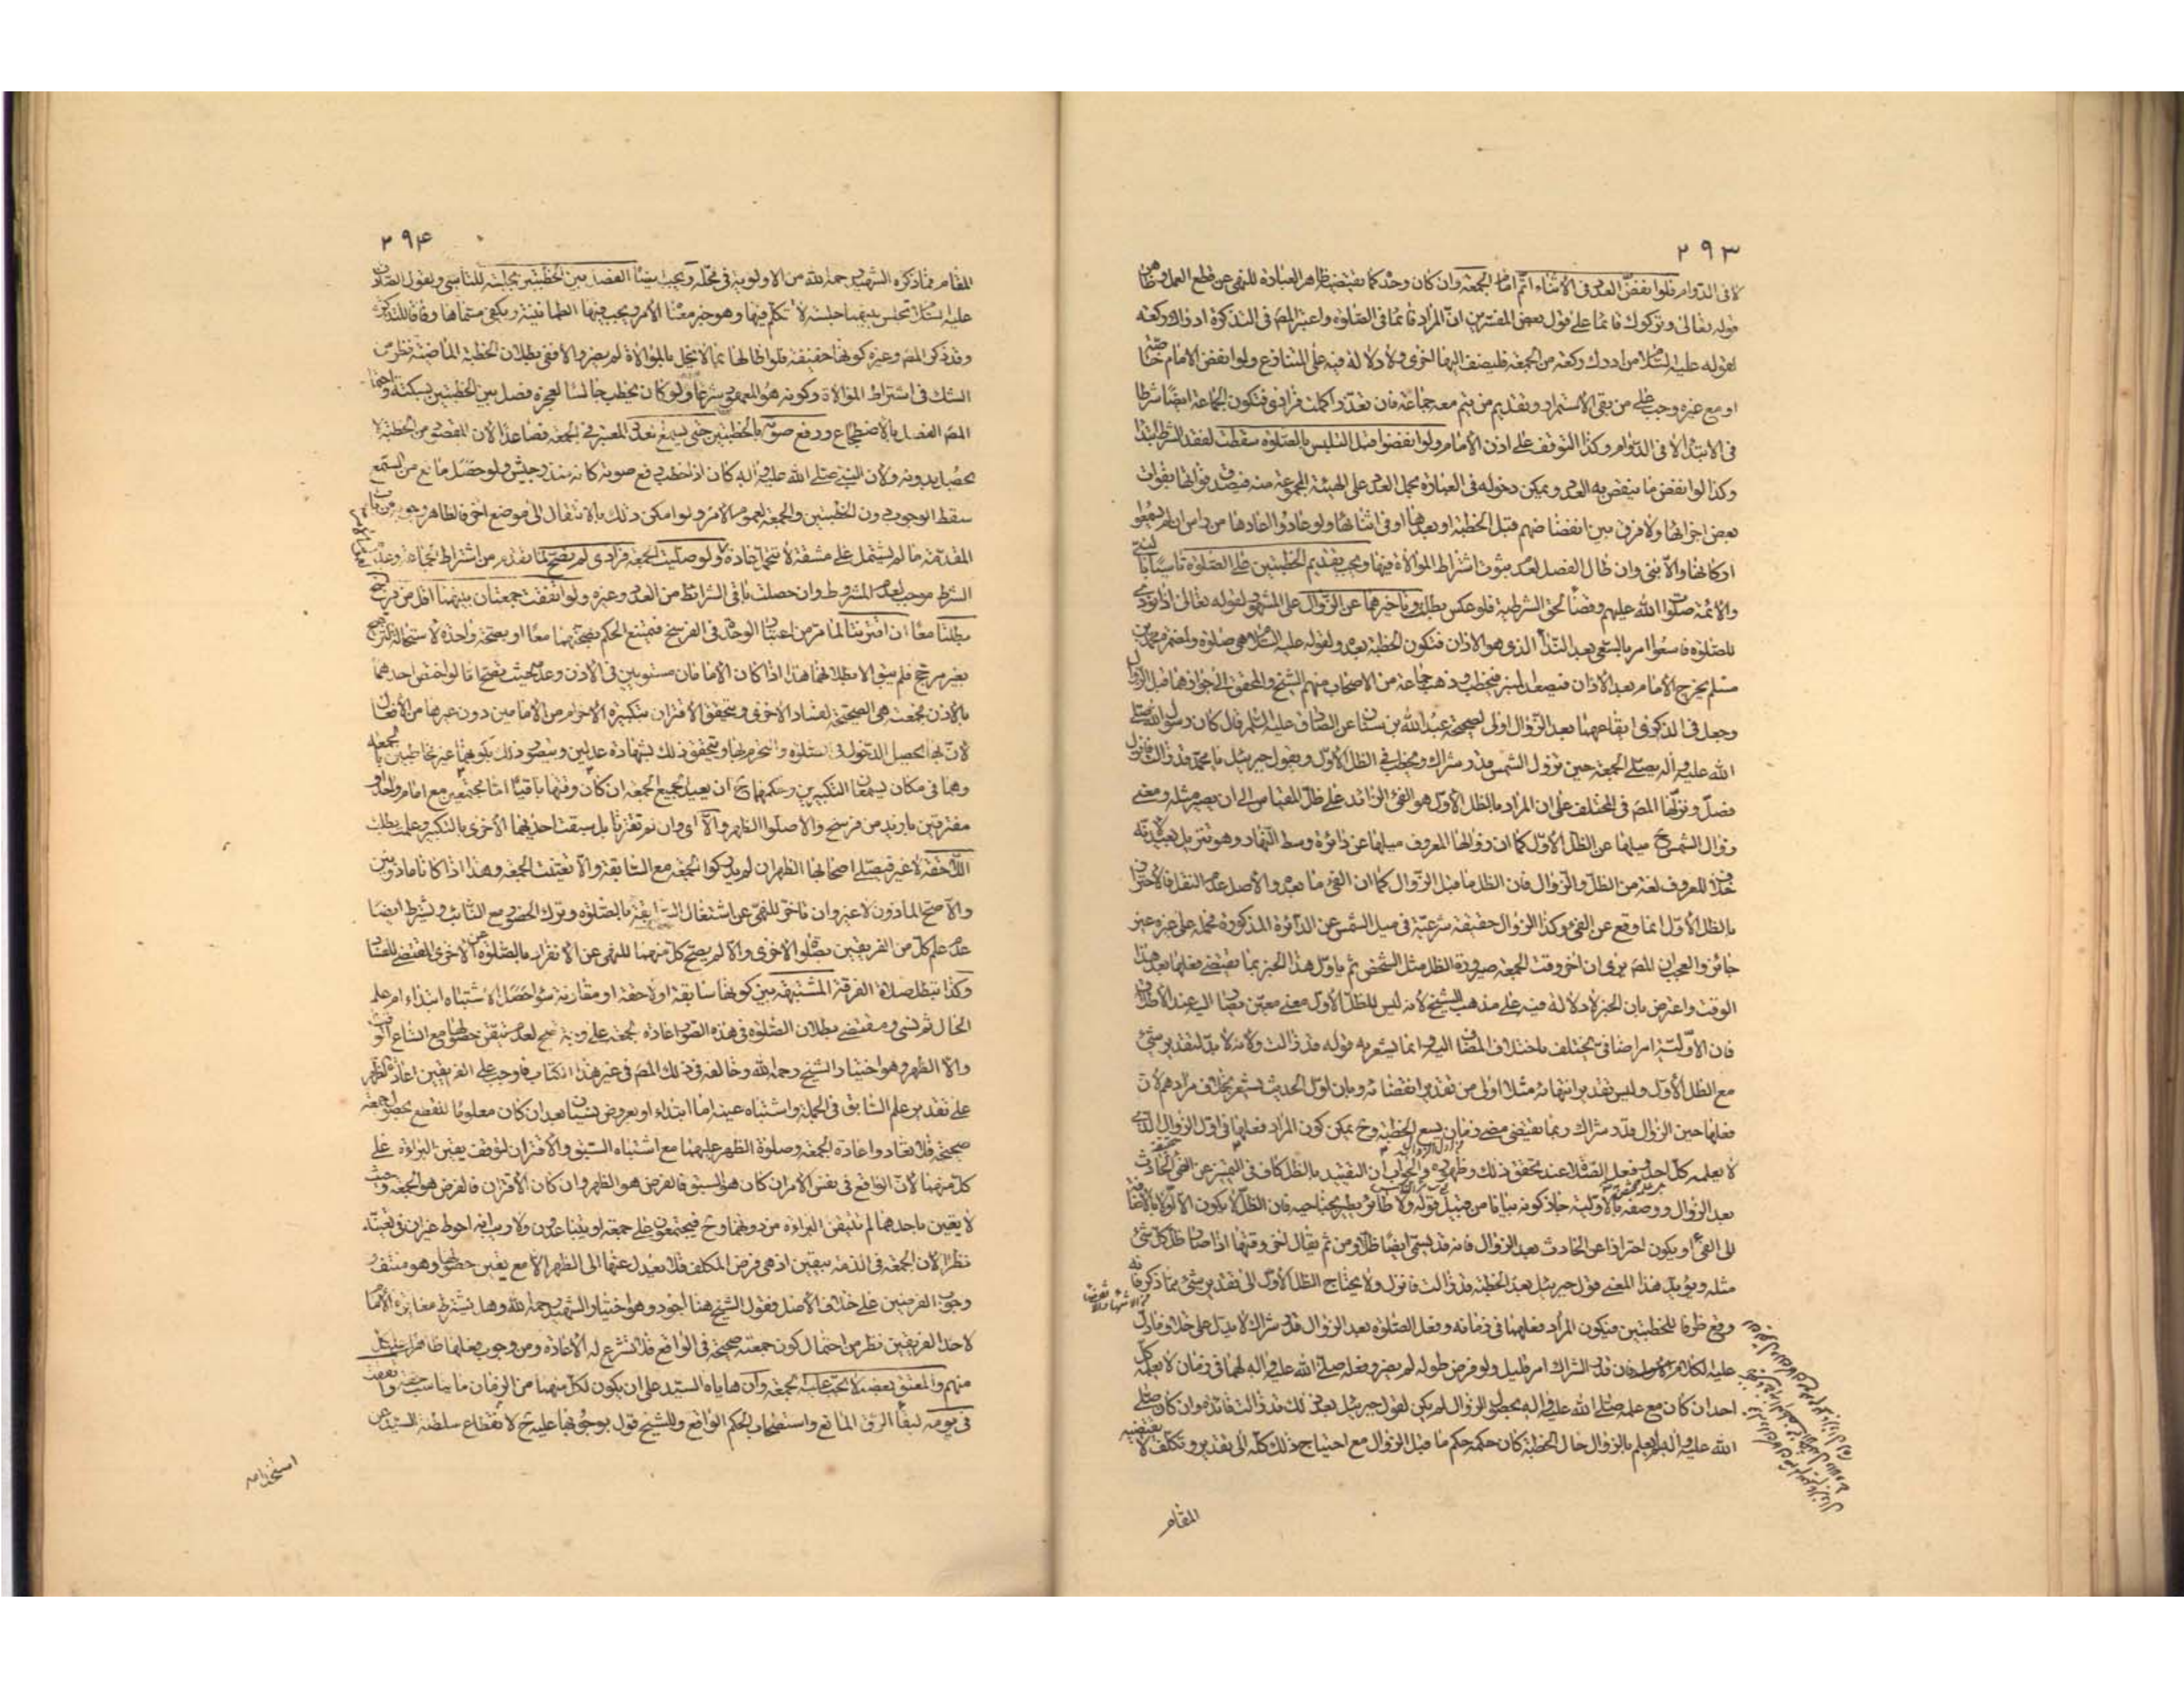 ۲۹۳
لا فى الدوام فلو انفض العدد فى الاثناء اتم الامام الجمعة وان كان وحده كما يقتضيه ظاهر العبارة للنهى عن قطع العمل وظاهر
قوله تعالى وتركوك قائما على قول بعض المفسرين ان المراد قائما فى الصلوة واعتبر المص فى التذكرة ادراك ركعة
لقوله عليه السلام من ادرك ركعة من الجمعة فليضف اليها اخرى ولا دلالة فيه على المتنازع ولو انفض الامام خاصة
او مع غيره وجب على من بقى الاستمرار وتقديم من يتم معه جماعة فان تعذر اكملت فرادى فتكون الجماعة ايضا شرطا
فى الابتداء لا فى الدوام وكذا التوقف على اذن الامام ولو انفضوا قبل التلبس بالصلوة سقطت لفقد الشرط ابتداء
وكذا لو انفض ما ينقص به العدد ويمكن دخوله فى العبارة بحمل العدد على الهيئة المجموعة منه فيصدق فواتها بفوات
بعض اجزائها ولا فرق بين انفضاضهم قبل الخطبة او بعدها او فى اثنائها ولو عادوا اعادها من راس ان لم يسمعوا
اركانها والا بنى وان طال الفصل لعدم ثبوت اشتراط الموالاة فيها ويجب تقديم الخطبتين على الصلوة تاسيا بالنبى
والائمة صلوات الله عليهم وقضاء لحق الشرطية فلو عكس بطلت وتاخيرهما عن الزوال على المشهور لقوله تعالى اذا نودى
للصلوة فاسعوا امر بالسعى بعد النداء الذى هو الاذان فتكون الخطبة بعده ولقوله عليه السلام هى صلوة ولمضمر محمد بن
مسلم يخرج الامام بعد الاذان فيصعد المنبر فيخطب وذهب جماعة من الاصحاب منهم الشيخ والمحقق الى جوازهما قبل الزوال
وجعل فى الذكرى ايقاعهما بعد الزوال اولى لصحيحة عبد الله بن سنان عن الصادق عليه السلم قال كان رسول الله صلى
الله عليه واله يصلى الجمعة حين تزول الشمس قدر شراك ويخطب فى الظل الاول ويقول جبرئيل يا محمد قد زالت فانزل
فصل ونزلها المص فى المختلف على ان المراد بالظل الاول هو الفئ الزائد على ظل المقياس الى ان يصير مثله ومعنى
زوال الشمس ح ميلها عن الظل الاول كما ان زوالها المعروف ميلها عن دائرة وسط النهار وهو تنزيل بعيد لانه
خلاف المعروف لغة من الظل والزوال فان الظل ما قبل الزوال كما ان الفئ ما بعده والاصل عدم النقل فالاحتراز
بالظل الاول انما وقع عن الفئ وكذا الزوال حقيقة شرعية فى ميل الشمس عن الدائرة المذكورة فحمله على غيره غير
جائز والعجب ان المص يرى ان اخر وقت الجمعة صيرورة الظل مثل الشخص ثم ياول هذا الخبر بما يقتضى فعلها بعد هذا
الوقت واعترض بان الخبر لا دلالة فيه على مذهب الشيخ لانه ليس للظل الاول معنى معين يضاف اليه عند الاطلاق
فان الاولية امر اضافى يختلف باختلاف المضاف اليه وانما يشعر به قوله قد زالت ولانه لا بد لتقدير شئ
مع الظل الاول وليس تقدير انتهائه مثلا اولى من تقدير انقضائه وبان اول الحديث يشعر بخلاف مرادهم لان
فعلها حين الزوال قدر شراك ربما يقتضى مضى زمان يسع الخطبة وح يمكن كون المراد فعلها فى اول الزوال الذى
لا يعلمه كل احد وفعل الصلاة عند تحقق ذلك وظهوره والجواب ان التقييد بالظل كاف فى التميز عن الفئ الحادث
بعد الزوال ووصفه بالاولية جاز كونه بيانا من قبيل قوله ولا طائر يطير بجناحيه فان الظل لا يكون الا اولا بالاضافة
الى الفئ او يكون احترازا عن الحادث بعد الزوال فانه قد يسمى ايضا ظلا ومن ثم يقال اخر وقتها اذا صار ظل كل شئ
مثله ويؤيد هذا المعنى قول جبرئيل بعد الخطبة قد زالت فانزل ولا يحتاج الظل الاول الى تقدير شئ مما ذكر فانه
وقع ظرفا للخطبتين فيكون المراد فعلهما فى زمانه وفعل الصلوة بعد الزوال قدر شراك لا يدل على خلاف ما دل
عليه الكلام الاول فان قدر الشراك امر قليل ولو فرض طوله لم يضر وفعله صلى الله عليه واله لهما فى زمان لا يعلمه كل
احد ان كان مع علمه صلى الله عليه واله بحصول الزوال لم يكن لقول جبرئيل بعد ذلك قد زالت فائدة وان كان صلى
الله عليه واله لم يعلم بالزوال حال الخطبة كان حكمه حكم ما قبل الزوال مع احتياج ذلك كله الى تقدير وتكلف لا يقتضيه
المقام
۲۹۴
المقام فما ذكره الشهيد رحمه الله من الاولوية فى محله ويجب ايضا الفصل بين الخطبتين بجلسة للتاسى ولقول الصادق
عليه السلام يجلس بينهما جلسة لا تكلم فيها وهو خبر معناه الامر ويجب فيها الطمانينة ويكفى مسماها وفاقا للتذكرة
وقد ذكر المص وغيره كونها خفيفة فلو اطالها بما لا يخل بالموالاة لم يضر والا ففى بطلان الخطبة الماضية نظر من
الشك فى اشتراط الموالاة وكونه هو المعهود شرعا ولو كان يخطب جالسا لعجزه فصل بين الخطبتين بسكتة واحتمل
المص الفصل بالاضطجاع ورفع صوته بالخطبتين حتى يسمع العدد المعتبر فى الجمعة فصاعدا لان المقصود من الخطبة لا
يحصل بدونه ولان النبى صلى الله عليه واله كان اذا خطب رفع صوته كانه منذر جيش ولو حصل مانع من السمع
سقط الوجوب دون الخطبتين والجمعة لعموم الامر ولو امكن ذلك بالانتقال الى موضع اخر فالظاهر وجوبه من باب
المقدمة ما لم يشتمل على مشقة لا تتحمل عادة ولو صليت الجمعة فرادى لم تصح لما تقدم من اشتراط الجماعة وعدم
الشرط موجب لعدم المشروط وان حصلت باقى الشرائط من العدد وغيره ولو اتفقت جمعتان بينهما اقل من فرسخ
بطلتا معا ان اقترنتا لما مر من اعتبار الوحدة فى الفرسخ فيمتنع الحكم بصحتهما معا او بصحة واحدة لاستحالة الترجيح
بغير مرجح فلم يبق الا بطلانهما هذا اذا كان الامامان مستويين فى الاذن وعدمه حيث نصححها فلو اختص احدهما
بالاذن فجمعته هى الصحيحة لفساد الاخرى ويتحقق الاقتران بتكبيرة الاحرام من الامامين دون غيرها من الافعال
لان بها يحصل الدخول فى الصلوة والتحرم بها ويتحقق ذلك بشهادة عدلين ويتصور ذلك بكونهما غير مخاطبين بالجمعة
وهما فى مكان يسمعان التكبيرين وحكمهما ح ان يعيد الجميع الجمعة ان كان وقتها باقيا اما مجتمعين مع امام واحد او
مفترقين بازيد من فرسخ والا صلوا الظهر والا اى وان لم تقترنا بل سبقت احديهما الاخرى بالتكبير وعلمت بطلت
اللاحقة لا غير فيصلى اصحابها الظهر ان لم يدركوا الجمعة مع السابقة والا تعينت الجمعة وهذا اذا كانا ماذونين
والا صح الماذون لا غير وان تاخر للنهى عن اشتغال السابقة بالصلوة وترك الحضور مع النائب ويشترط ايضا
عدم علم كل من الفريقين بصلوة الاخرى والا لم يصح كل منهما للنهى عن الانفراد بالصلوة عن الاخرى المقتضى للفساد
وكذا تبطل صلاة الفرقة المشتبهة بين كونها سابقة او لاحقة او مقارنة سواء حصل الاشتباه ابتداء ام علم
الحال ثم نسى ومقتضى بطلان الصلوة فى هذه الصور اعادة الجمعة على وجه يصح لعدم تيقن حصولها مع اتساع الوقت
والا الظهر وهو اختيار الشيخ رحمه الله وخالفه فى ذلك المص فى غير هذا الكتاب فاوجب على الفريقين اعادة الظهر
على تقدير علم السابق فى الجملة واشتباه عينه اما ابتداء او بعروض نسيان بعد ان كان معلوما للقطع بحصول جمعة
صحيحة فلا تعاد واعادة الجمعة وصلوة الظهر عليهما مع اشتباه السبق والاقتران لتوقف يقين البراءة على
كل منهما لان الواقع فى نفس الامر ان كان هو السبق فالفرض هو الظهر وان كان الاقتران فالفرض هو الجمعة وحيث
لا يقين باحدهما لم تتيقن البراءة من دونهما وح فيجتمعون على جمعة او يتباعدون ولا ريب انه احوط غير ان فى تعينه
نظرا لان الجمعة فى الذمة بيقين اذ هى فرض المكلف فلا يعدل عنها الى الظهر الا مع يقين حصولها وهو منتف و
وجوب الفرضين على خلاف الاصل فقول الشيخ هنا اجود وهو اختيار الشهيد رحمه الله وهل يشترط مغايرة الامام
لاحد الفريقين نظر من احتمال كون جمعته صحيحة فى الواقع فلا تشرع له الاعادة ومن وجوب فعلها ظاهرا على كل
منهم والمعتق بعضه لا تجب عليه الجمعة وان هاياه السيد على ان يكون لكل منهما من الزمان ما يناسب حقه واتفقت
فى يومه لبقاء الرق المانع واستصحاب الحكم الواقع وللشيخ قول بوجوبها عليه ح لانقطاع سلطنة السيد عن
استخدامه